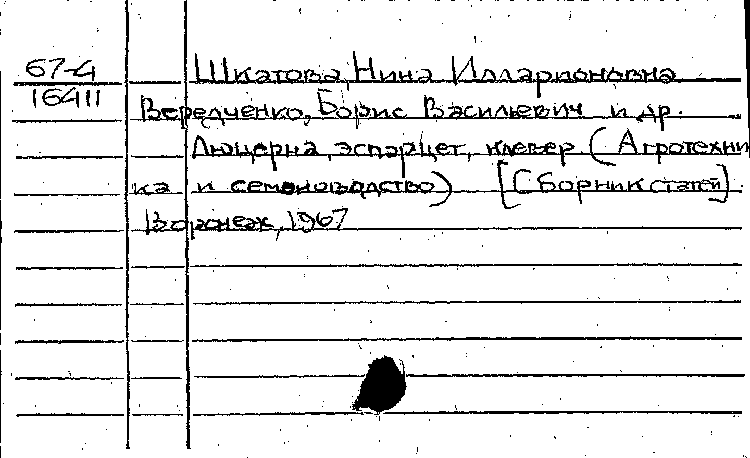 67-4
16411
Шкатова, Нина Илларионовна
Вередченко, Борис Васильевич и др.
Люцерна, эспарцет, клевер. (Агротехни
ка и семеноводство) [Сборник статей].
Воронеж, 1967